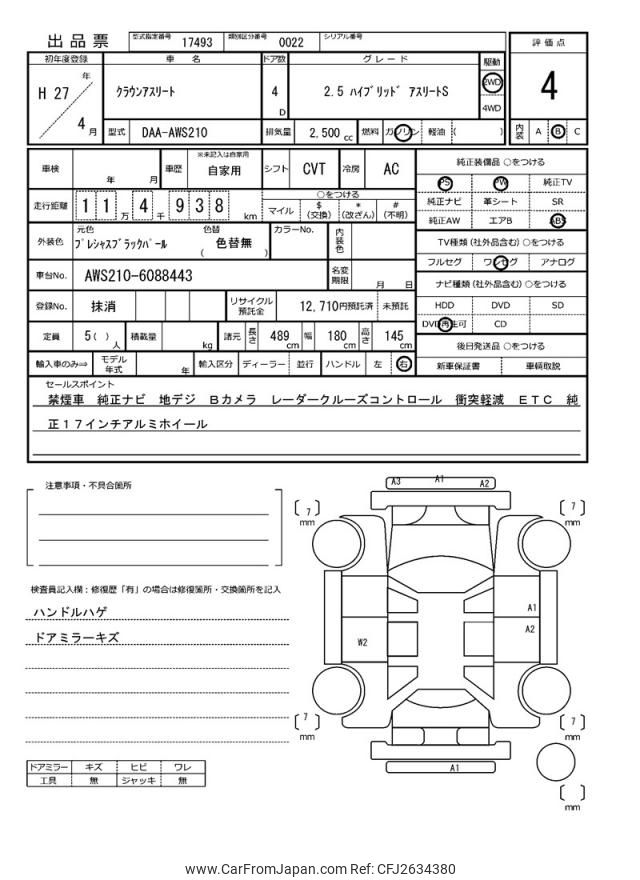 出品票 型式指定番号 17493 類別区分番号 0022 シリアル番号
評価点
4
初年度登録 車名 ドア数 グレード 駆動
H 27 年 4 月
クラウンアスリート
4 D
2.5 ハイブリッド アスリートS
2WD
4WD
型式 DAA-AWS210 排気量 2,500 cc 燃料 ガソリン 軽油 ( )
内装 A B C
車検 年 月 車歴 ※未記入は自家用 自家用 シフト CVT 冷房 AC
純正装備品 ○をつける
PS PW 純正TV
走行距離 1 1 万 4 千 9 3 8 km
○をつける
マイル $ (交換) * (改ざん) # (不明)
純正ナビ 革シート SR
純正AW エアB ABS
外装色 元色 プレシャスブラックパール 色替 色替無 ( ) カラーNo. 内装色
TV種類 (社外品含む) ○をつける
フルセグ ワンセグ アナログ
車台No. AWS210-6088443 名変期限 月 日
ナビ種類 (社外品含む) ○をつける
HDD DVD SD
登録No. 抹消 リサイクル預託金 12,710円預託済 未預託
DVD再生可 CD
定員 5 ( ) 人 積載量 kg 諸元 長さ 489 cm 幅 180 cm 高さ 145 cm
後日発送品 ○をつける
輸入車のみ⇒ モデル年式 年 輸入区分 ディーラー 並行 ハンドル 左 右
新車保証書 車輌取説
セールスポイント
禁煙車 純正ナビ 地デジ Bカメラ レーダークルーズコントロール 衝突軽減 ETC 純
正17インチアルミホイール
注意事項・不具合箇所
検査員記入欄:修復歴「有」の場合は修復箇所・交換箇所を記入
ハンドルハゲ
ドアミラーキズ
ドアミラー キズ ヒビ ワレ
工具 無 ジャッキ 無
A3 A1 A2
7 mm
7 mm
A1
A2
W2
7 mm
7 mm
A1
mm
www.CarFromJapan.com Ref: CFJ2634380